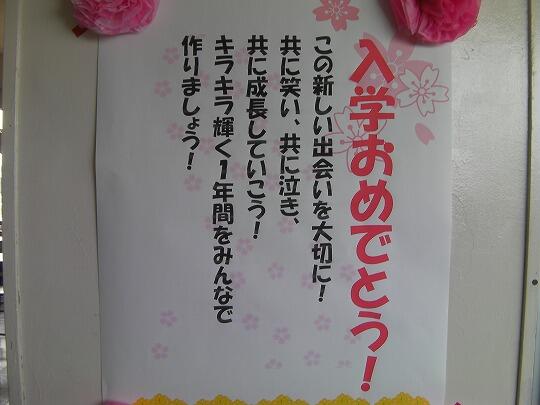 入学おめでとう！
この新しい出会いを大切に！
共に笑い、共に泣き、
共に成長していこう！
キラキラ輝く１年間をみんなで
作りましょう！